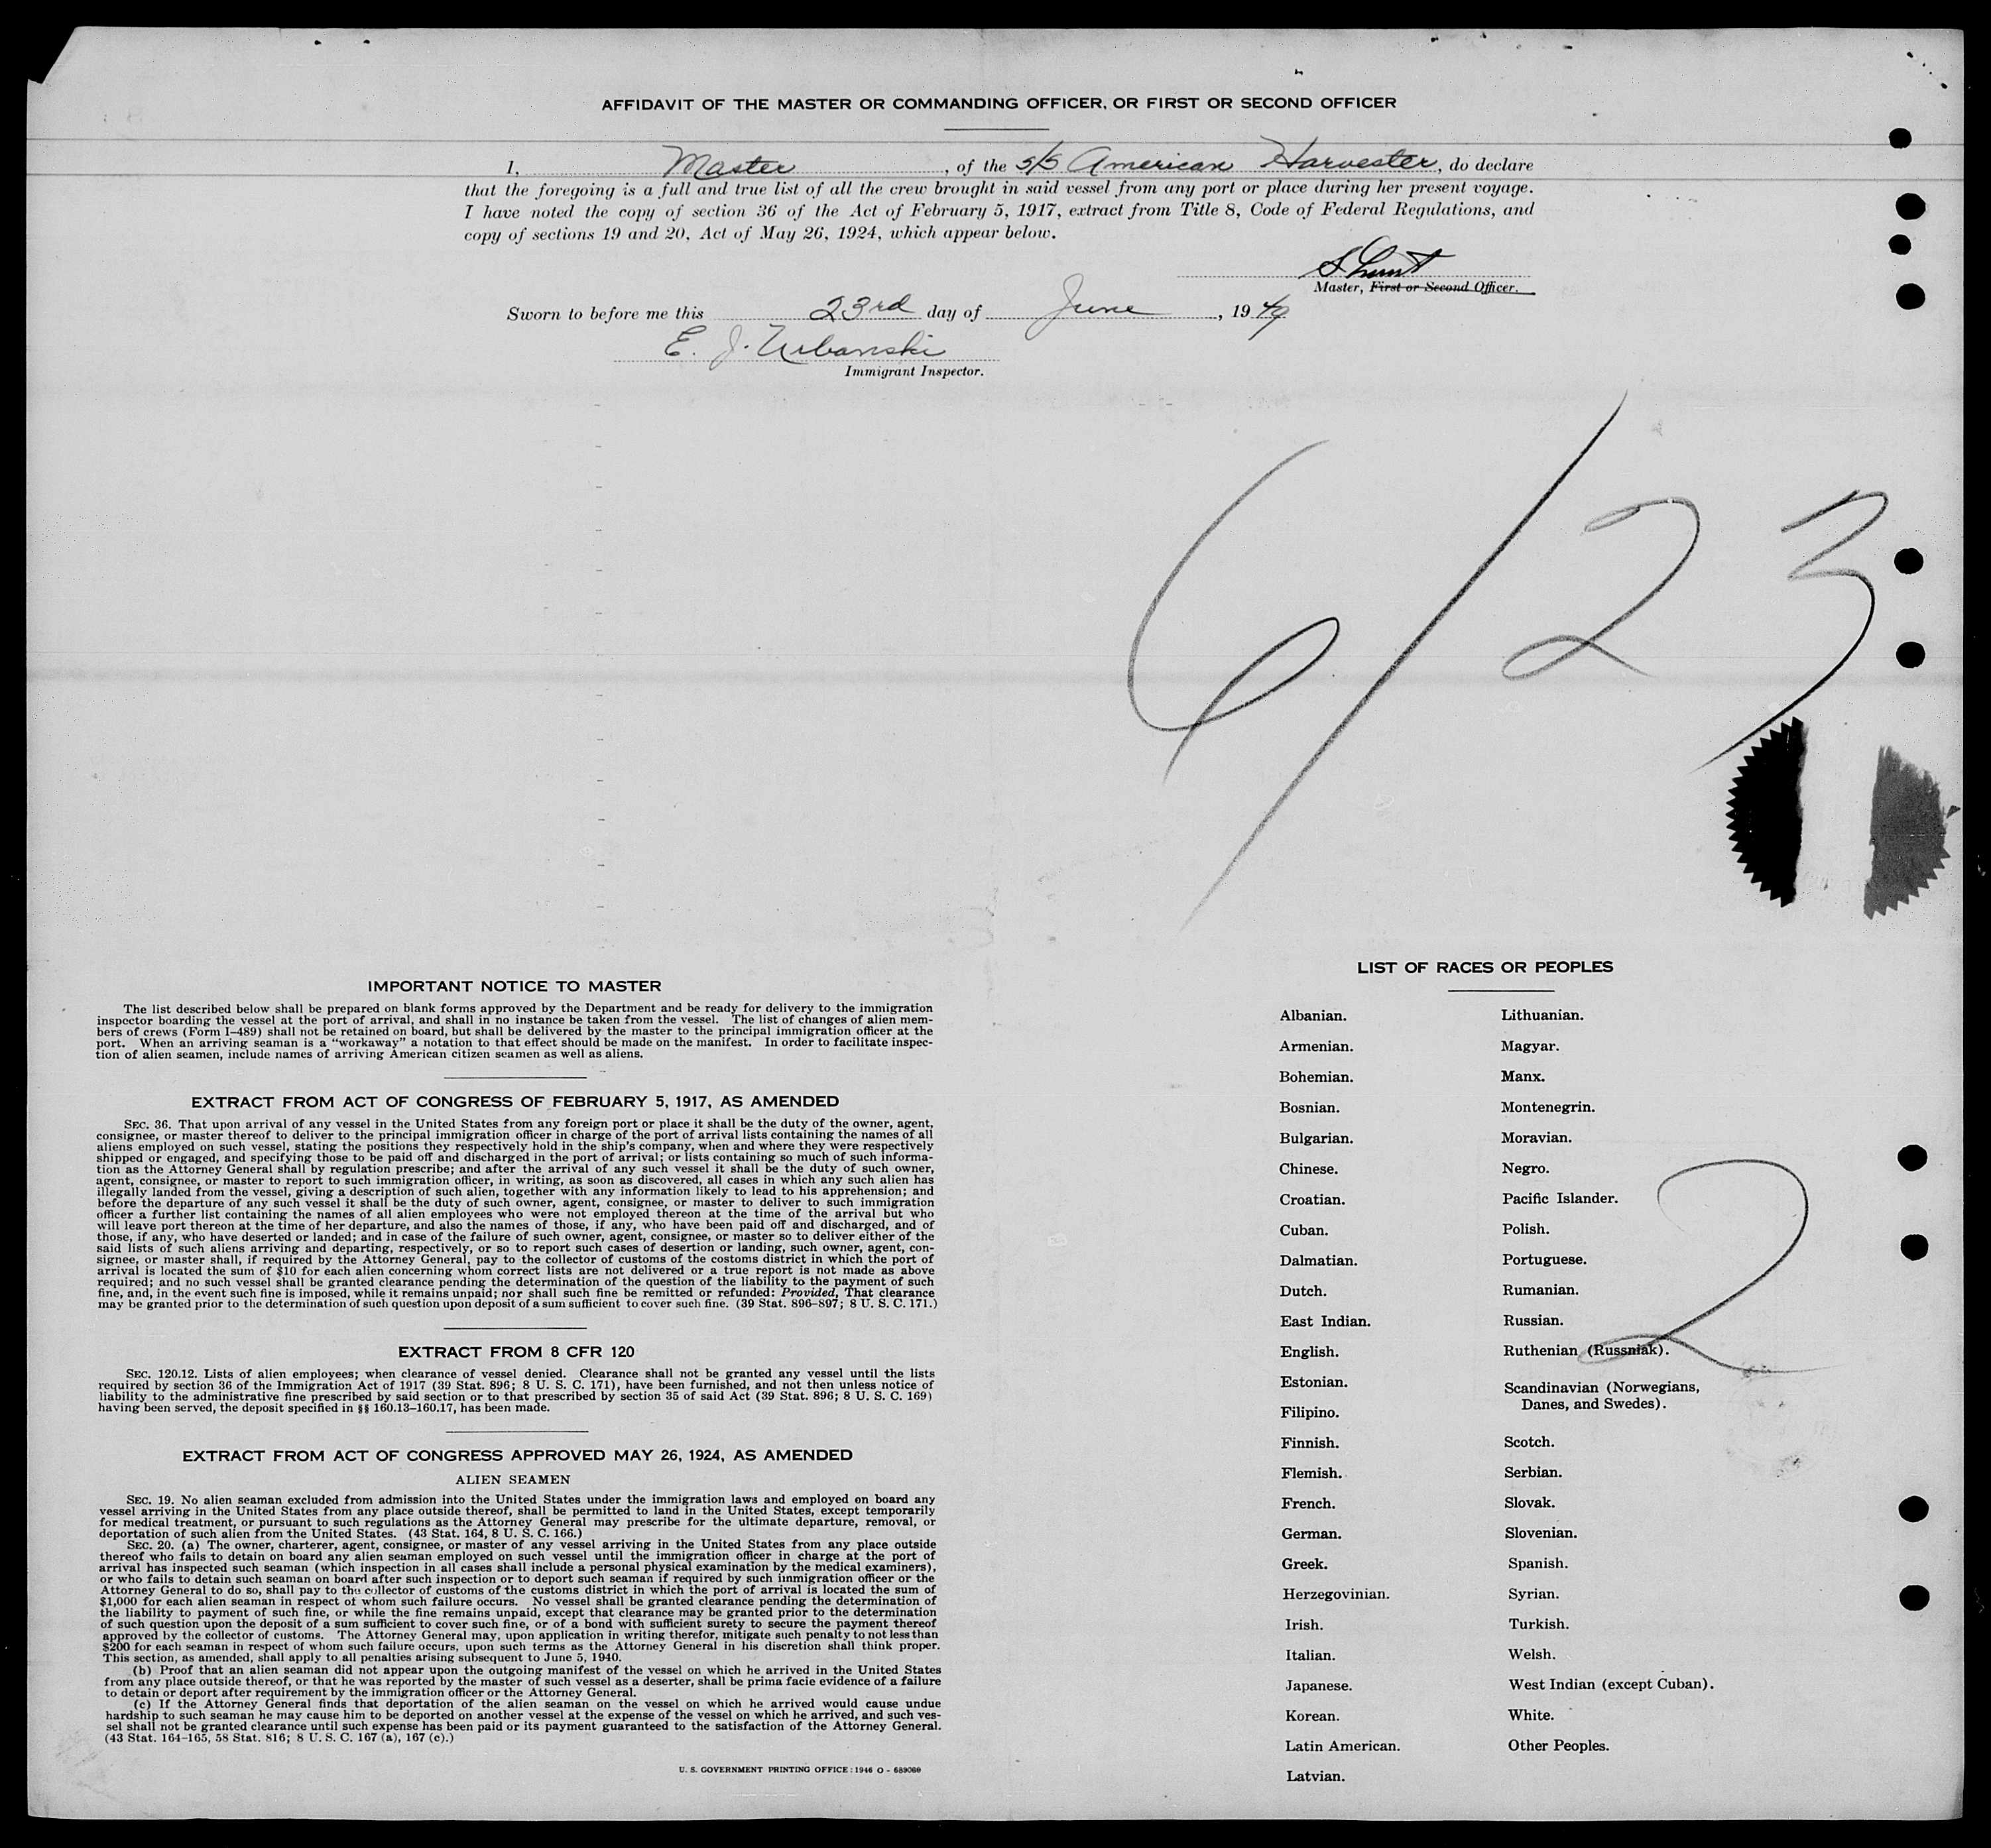 AFFIDAVIT OF THE MASTER OR COMMANDING OFFICER, OR FIRST OR SECOND OFFICER
I, Master, of the S/S American Harvester, do declare
that the foregoing is a full and true list of all the crew brought in said vessel from any port or place during her present voyage.
I have noted the copy of section 36 of the Act of February 5, 1917, extract from Title 8, Code of Federal Regulations, and
copy of sections 19 and 20, Act of May 26, 1924, which appear below.
Master, First or Second Officer.
Sworn to before me this 23rd day of June, 1949
E. J. Urbanski
Immigrant Inspector.
6/23
IMPORTANT NOTICE TO MASTER
The list described below shall be prepared on blank forms approved by the Department and be ready for delivery to the immigration
inspector boarding the vessel at the port of arrival, and shall in no instance be taken from the vessel. The list of changes of alien mem-
bers of crews (Form I–489) shall not be retained on board, but shall be delivered by the master to the principal immigration officer at the
port. When an arriving seaman is a "workaway" a notation to that effect should be made on the manifest. In order to facilitate inspec-
tion of alien seamen, include names of arriving American citizen seamen as well as aliens.
EXTRACT FROM ACT OF CONGRESS OF FEBRUARY 5, 1917, AS AMENDED
SEC. 36. That upon arrival of any vessel in the United States from any foreign port or place it shall be the duty of the owner, agent,
consignee, or master thereof to deliver to the principal immigration officer in charge of the port of arrival lists containing the names of all
aliens employed on such vessel, stating the positions they respectively hold in the ship's company, when and where they were respectively
shipped or engaged, and specifying those to be paid off and discharged in the port of arrival; or lists containing so much of such informa-
tion as the Attorney General shall by regulation prescribe; and after the arrival of any such vessel it shall be the duty of such owner,
agent, consignee, or master to report to such immigration officer, in writing, as soon as discovered, all cases in which any such alien has
illegally landed from the vessel, giving a description of such alien, together with any information likely to lead to his apprehension; and
before the departure of any such vessel it shall be the duty of such owner, agent, consignee, or master to deliver to such immigration
officer a further list containing the names of all alien employees who were not employed thereon at the time of the arrival but who
will leave port thereon at the time of her departure, and also the names of those, if any, who have been paid off and discharged, and of
those, if any, who have deserted or landed; and in case of the failure of such owner, agent, consignee, or master so to deliver either of the
said lists of such aliens arriving and departing, respectively, or so to report such cases of desertion or landing, such owner, agent, con-
signee, or master shall, if required by the Attorney General, pay to the collector of customs of the costoms district in which the port of
arrival is located the sum of $10 for each alien concerning whom correct lists are not delivered or a true report is not made as above
required; and no such vessel shall be granted clearance pending the determination of the question of the liability to the payment of such
fine, and, in the event such fine is imposed, while it remains unpaid; nor shall such fine be remitted or refunded: Provided, That clearance
may be granted prior to the determination of such question upon deposit of a sum sufficient to cover such fine. (39 Stat. 896–897; 8 U. S. C. 171.)
EXTRACT FROM 8 CFR 120
SEC. 120.12. Lists of alien employees; when clearance of vessel denied. Clearance shall not be granted any vessel until the lists
required by section 36 of the Immigration Act of 1917 (39 Stat. 896; 8 U. S. C. 171), have been furnished, and not then unless notice of
liability to the administrative fine prescribed by said section or to that prescribed by section 35 of said Act (39 Stat. 896; 8 U. S. C. 169)
having been served, the deposit specified in §§ 160.13–160.17, has been made.
EXTRACT FROM ACT OF CONGRESS APPROVED MAY 26, 1924, AS AMENDED
ALIEN SEAMEN
SEC. 19. No alien seaman excluded from admission into the United States under the immigration laws and employed on board any
vessel arriving in the United States from any place outside thereof, shall be permitted to land in the United States, except temporarily
for medical treatment, or pursuant to such regulations as the Attorney General may prescribe for the ultimate departure, removal, or
deportation of such alien from the United States. (43 Stat. 164, 8 U. S. C. 166.)
SEC. 20. (a) The owner, charterer, agent, consignee, or master of any vessel arriving in the United States from any place outside
thereof who fails to detain on board any alien seaman employed on such vessel until the immigration officer in charge at the port of
arrival has inspected such seaman (which inspection in all cases shall include a personal physical examination by the medical examiners),
or who fails to detain such seaman on board after such inspection or to deport such seaman if required by such immigration officer or the
Attorney General to do so, shall pay to the collector of customs of the customs district in which the port of arrival is located the sum of
$1,000 for each alien seaman in respect of whom such failure occurs. No vessel shall be granted clearance pending the determination of
the liability to payment of such fine, or while the fine remains unpaid, except that clearance may be granted prior to the determination
of such question upon the deposit of a sum sufficient to cover such fine, or of a bond with sufficient surety to secure the payment thereof
approved by the collector of customs. The Attorney General may, upon application in writing therefor, mitigate such penalty to not less than
$200 for each seaman in respect of whom such failure occurs, upon such terms as the Attorney General in his discretion shall think proper.
This section, as amended, shall apply to all penalties arising subsequent to June 5, 1940.
(b) Proof that an alien seaman did not appear upon the outgoing manifest of the vessel on which he arrived in the United States
from any place outside thereof, or that he was reported by the master of such vessel as a deserter, shall be prima facie evidence of a failure
to detain or deport after requirement by the immigration officer or the Attorney General.
(c) If the Attorney General finds that deportation of the alien seaman on the vessel on which he arrived would cause undue
hardship to such seaman he may cause him to be deported on another vessel at the expense of the vessel on which he arrived, and such ves-
sel shall not be granted clearance until such expense has been paid or its payment guaranteed to the satisfaction of the Attorney General.
(43 Stat. 164–165, 58 Stat. 816; 8 U. S. C. 167 (a), 167 (c).)
U. S. GOVERNMENT PRINTING OFFICE : 1946 O -
LIST OF RACES OR PEOPLES
Albanian.
Armenian.
Bohemian.
Bosnian.
Bulgarian.
Chinese.
Croatian.
Cuban.
Dalmatian.
Dutch.
East Indian.
English.
Estonian.
Filipino.
Finnish.
Flemish.
French.
German.
Greek.
Herzegovinian.
Irish.
Italian.
Japanese.
Korean.
Latin American.
Latvian.
Lithuanian.
Magyar.
Manx.
Montenegrin.
Moravian.
Negro.
Pacific Islander.
Polish.
Portuguese.
Rumanian.
Russian.
Ruthenian (Russniak).
Scandinavian (Norwegians,
Danes, and Swedes).
Scotch.
Serbian.
Slovak.
Slovenian.
Spanish.
Syrian.
Turkish.
Welsh.
West Indian (except Cuban).
White.
Other Peoples.
2